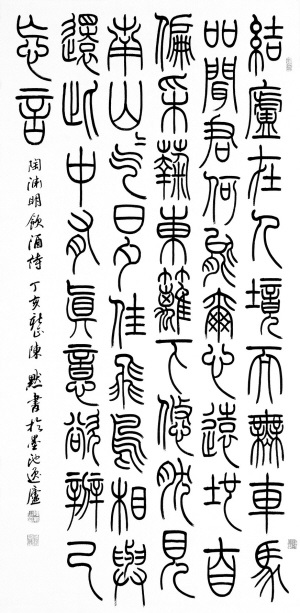 結廬在人境而無車馬
吅問君何能爾心遠地自
偏采菊東籬下悠然見
南山气日夕佳飛鳥相與
還此中有真意欲辨已
忘言
陶淵明飲酒詩 丁亥 陳默書於墨池逸廬